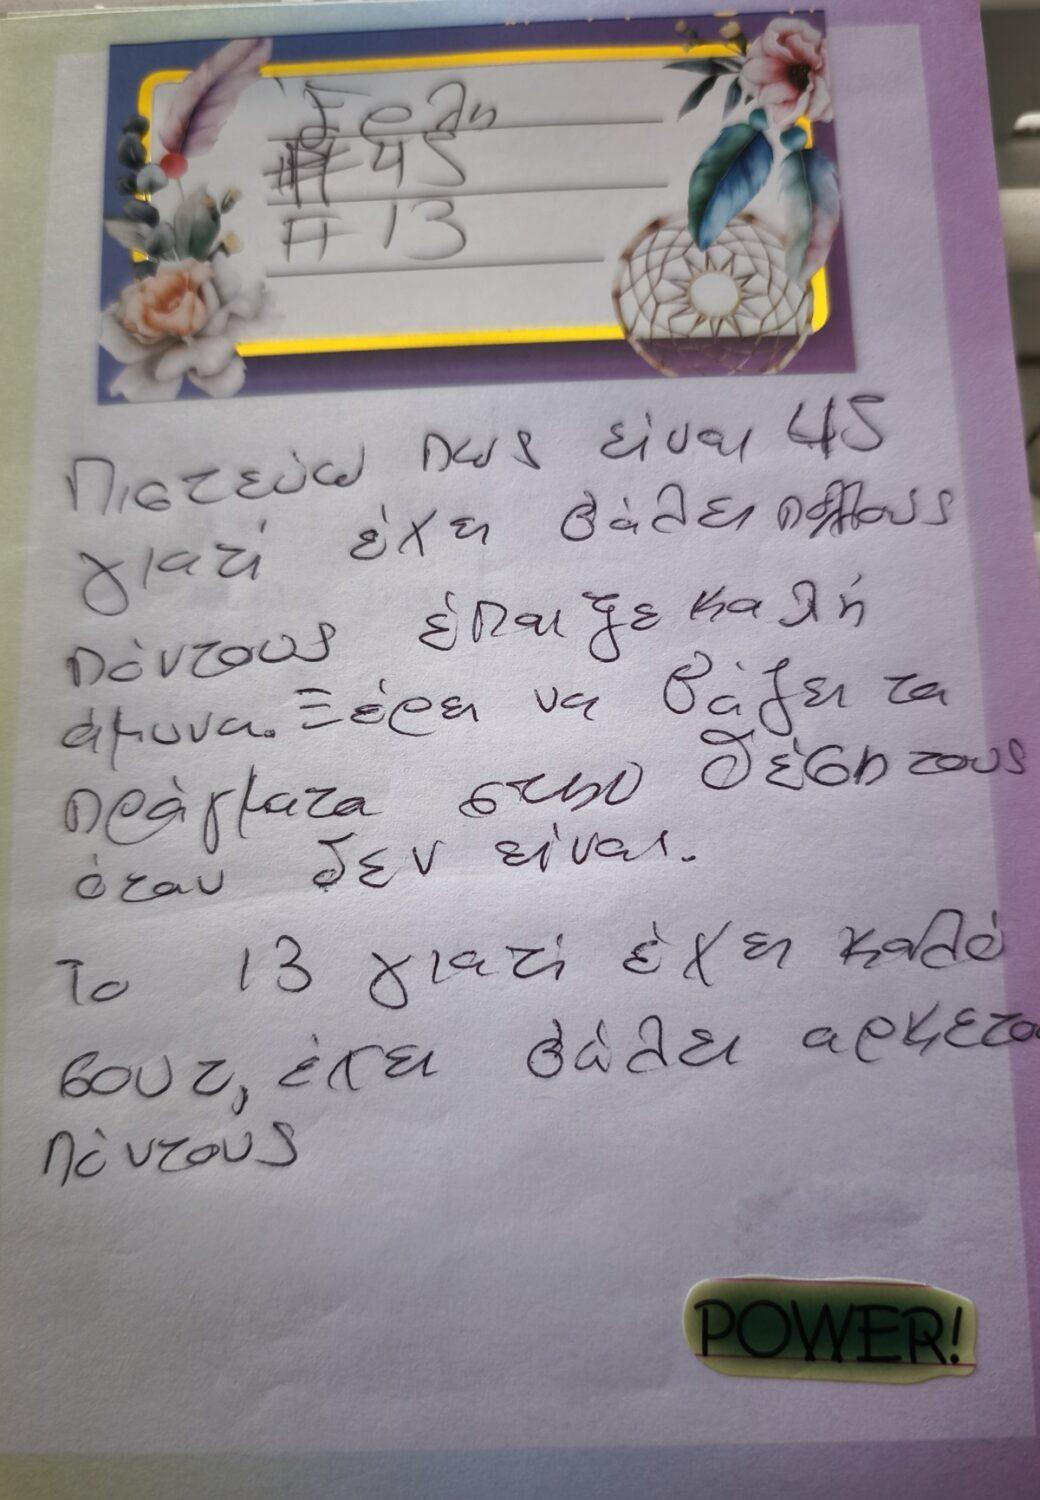 # 45
# 13
Πιστεύω πως είναι 45
γιατί έχει βάλει πολλούς
πόντους έπαιξε καλή
άμυνα. Ξέρει να βάζει τα
πράγματα στην θέση τους
όταν δεν είναι.
Το 13 γιατί έχει καλό
σουτ, έχει βάλει αρκετο
πόντους
POWER!